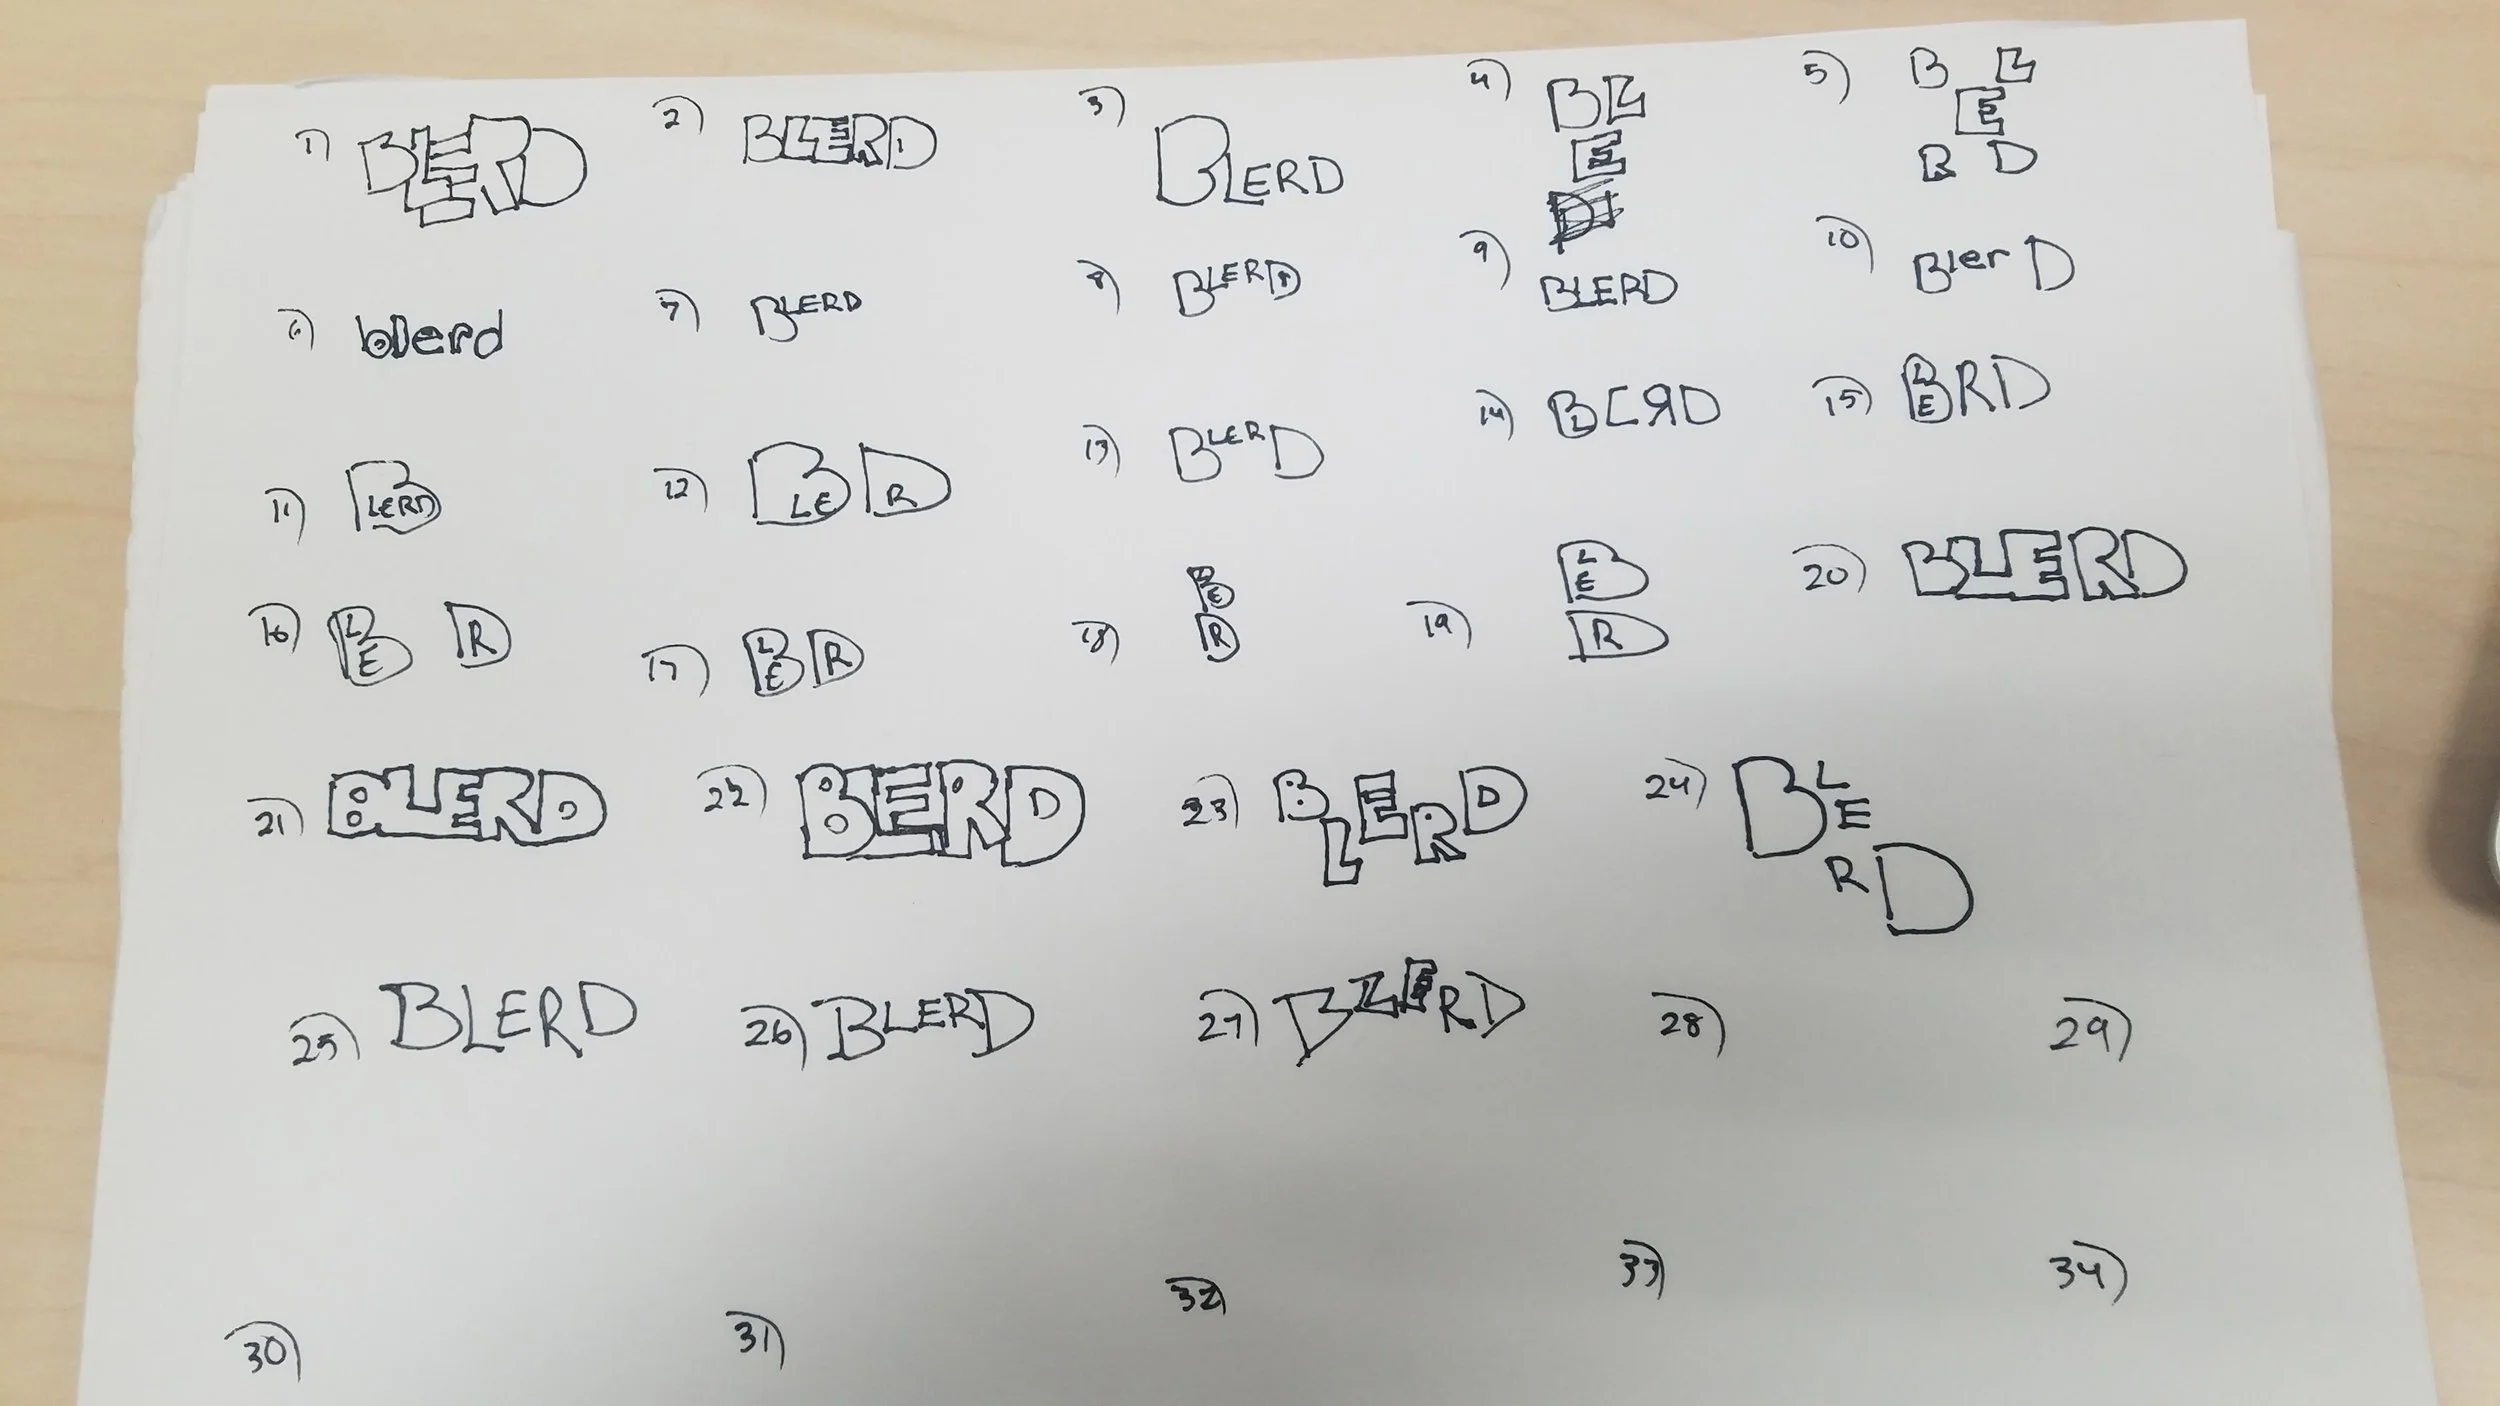 1) BLERD 2) BLERD 3) BLERD 4) BL
E
5) B L
E
R D
6) blerd 7) BLERD 8) BLERD 9) BLERD 10) Bler D
11) BLERD 12) BLE DR 13) BLERD 14) BLCЯD 15) BLERD
16) BLE DR 17) BLE DR 18) BLE
DR
19) BLE
DR
20) BLERD
21) BLERD 22) BLERD 23) BLERD 24) BLE
RD
25) BLERD 26) BLERD 27) BLERD 28) 29)
30) 31) 32) 33) 34)